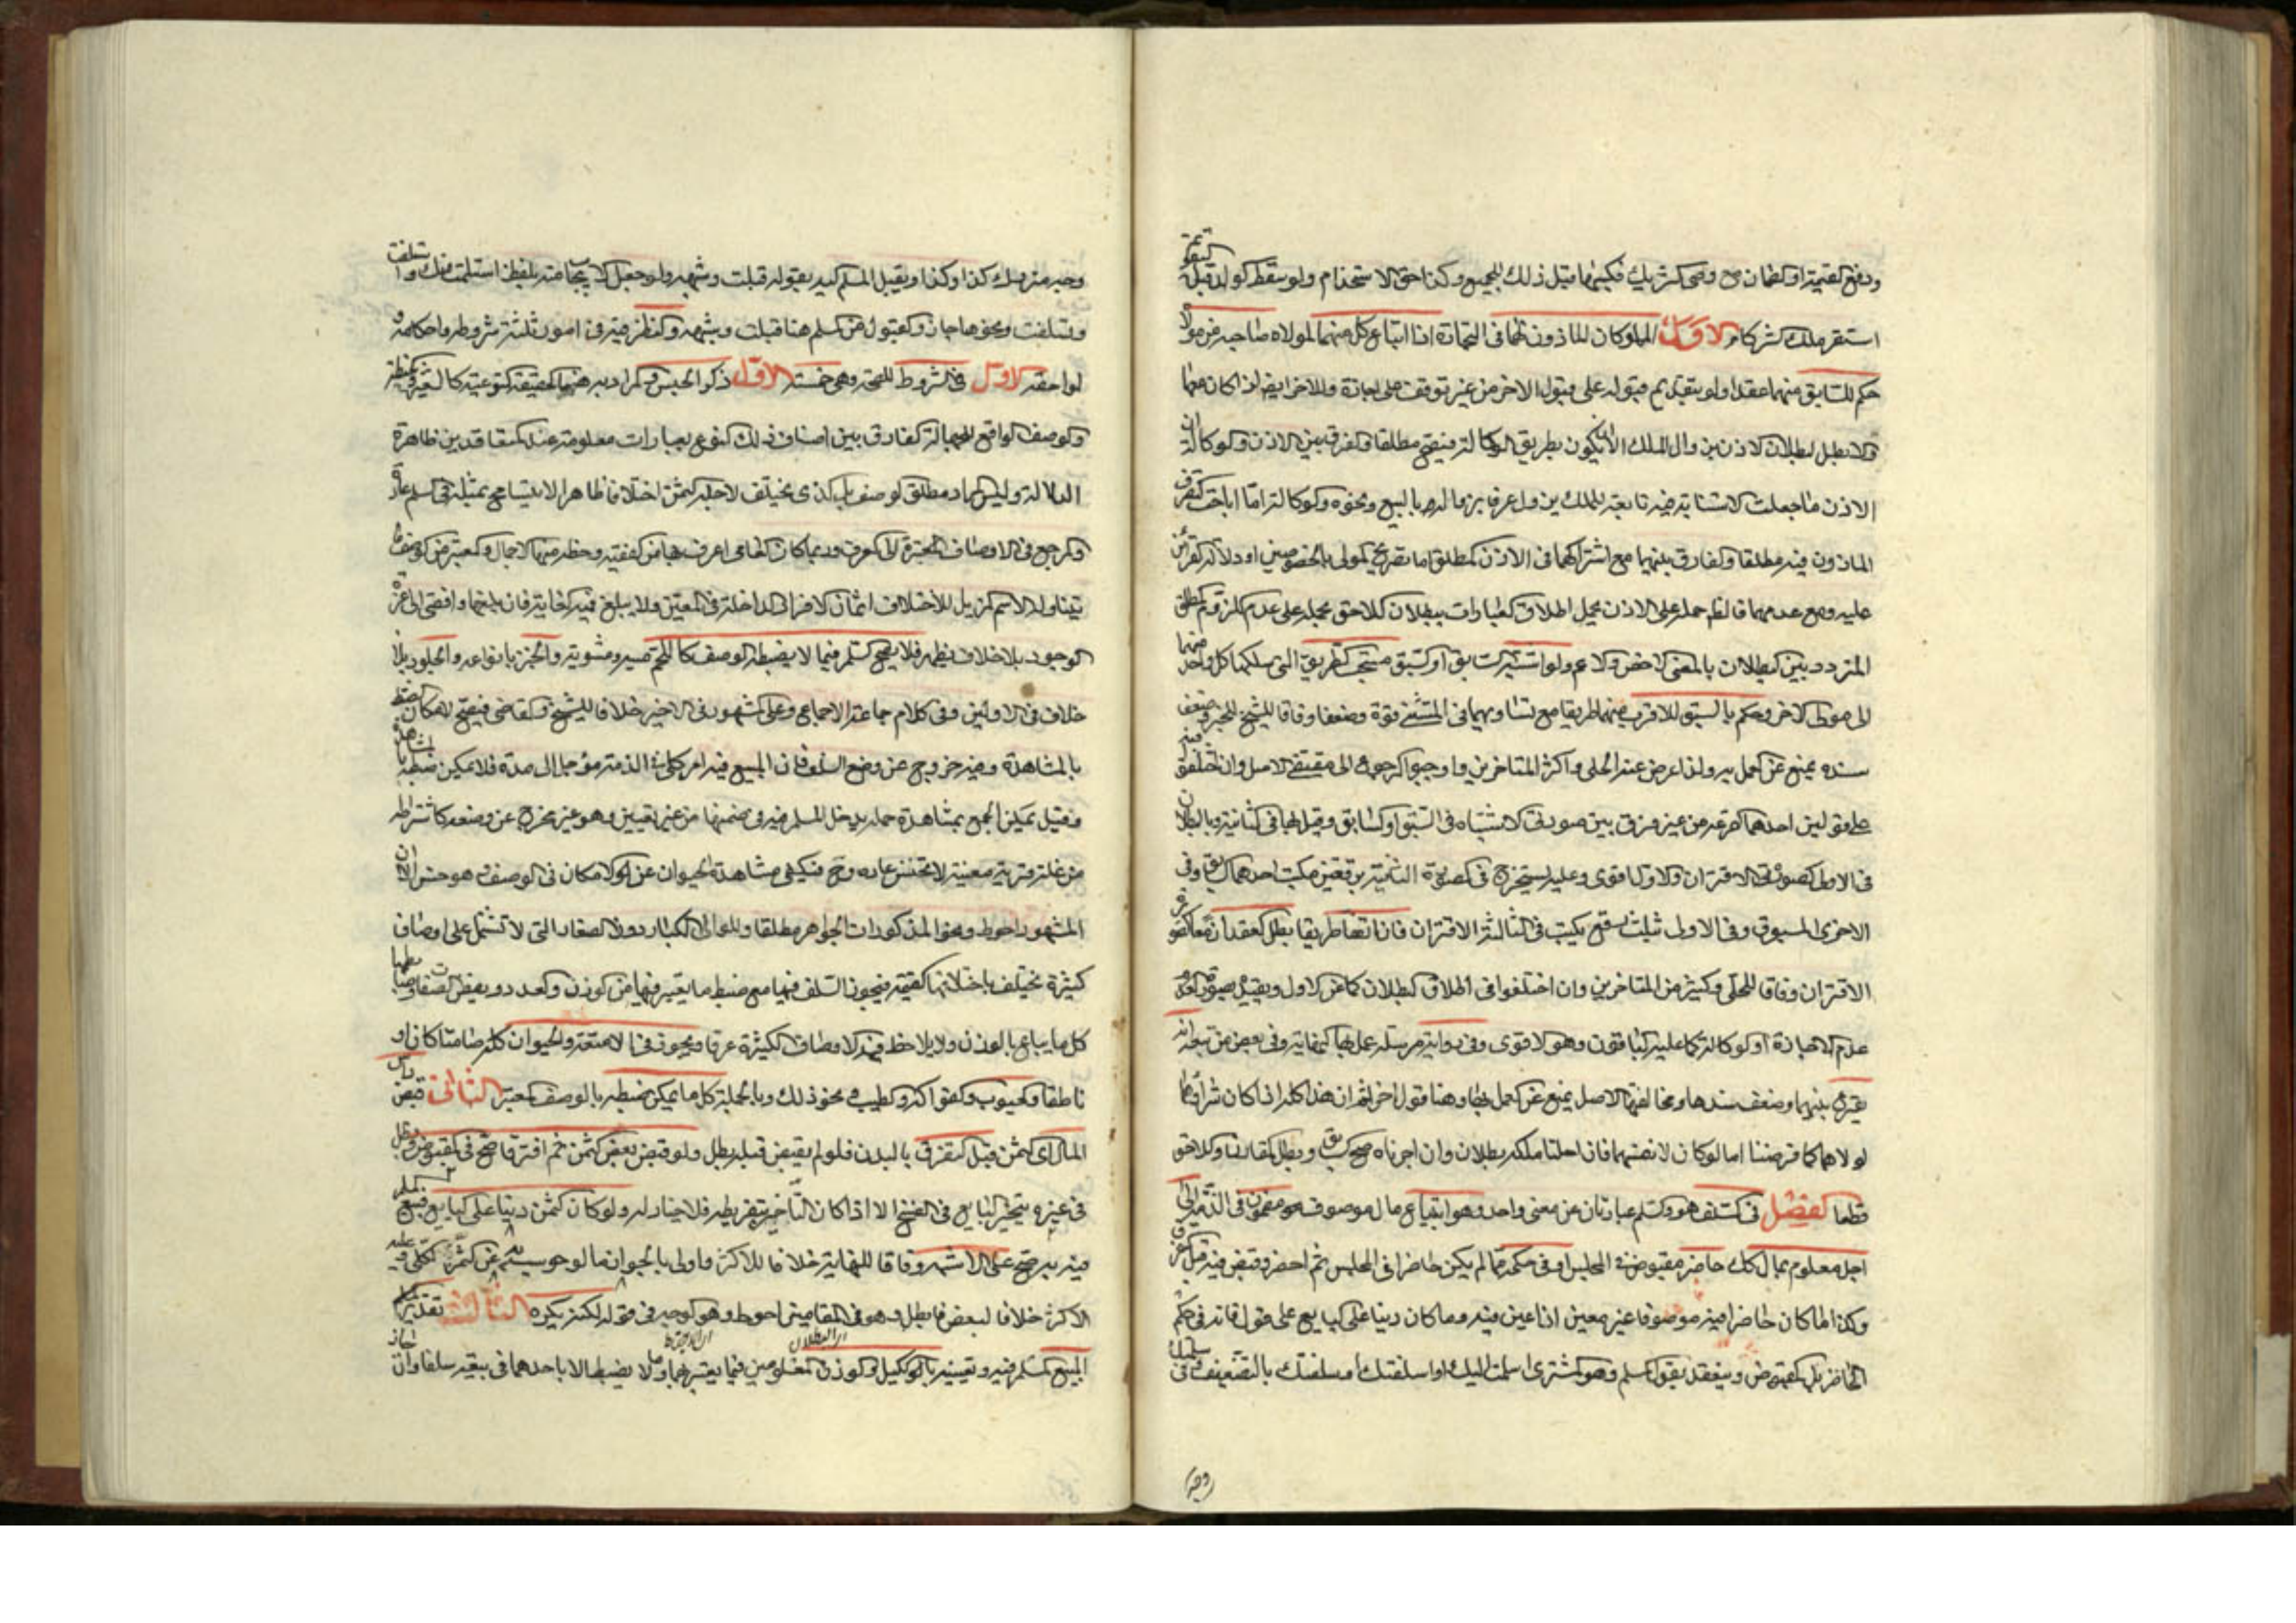 ودفع القيمة او الضمان وصحى الشريك فكسبها قبل ذلك للجميع وكذا حق الاستخدام ولو سقط الولد قبله
استقر ملك الشركاء الاول المملوكان الماذون لهما فى التجارة اذا ابتاع كل منهما لمولاه صاحبه من مولاه
حكم للسابق منهما عقدا ولو بتقديم قبوله على قبول الاخر من غير توقف على اجازة وللاخر ايضا ان كان معها
والا بطل لبطلان الاذن بزوال الملك الا ان يكون بطريق الوكالة فيصح مطلقا والفرق بين الاذن والوكالة ان
الاذن ما جعلت الاستنابة فيه تابعة للملك يزول عرفا بزواله بالبيع ونحوه والوكالة اما اباحت التصرف
الماذون فيه مطلقا والفارق بينهما مع اشتراكهما فى الاذن المطلق اما تصريح المولى بالخصوصين او دلالة القرائن
عليه ومع عدمهما فالظاهر حمله على الاذن يحمل اطلاق العبارات ببطلان اللاحق محمله على عدم اللزوم المطلق
المتردد بين البطلان بالمعنى الاخص والاعم ولو اشتبه السابق او السبق مسحت الطريق التى سلكها كل واحد منهما
الى مولى الاخر وحكم بالسبق للاقرب منهما طريقا مع تساويهما فى المشى قوة وضعفا وفاقا للشيخ للخبر وضعف
سنده يمنع عن العمل به ولذا اعرض عنه الحلى واكثر المتاخرين واوجبوا الرجوع الى مقتضى الاصل وان اختلفوا فيه
على قولين احدهما القرعة من غير فرق بين صورتى الاشتباه فى السبق او السابق وقيل بها فى الثانية وبالبطلان
فى الاولى لصورتى الاقتران والاول اقوى وعليه يستخرج فى الصورة الثانية برقعتين مكتب احدهما السابق وفى
الاخرى المسبوق وفى الاولى ثلث رقع يكتب فى الثالثة الاقتران فان اتفقا طريقا بطل العقدان معا لتحقق
الاقتران وفاقا للحلى وكثير من المتاخرين وان اختلفوا فى اطلاق البطلان كما عن الاول وتقييده بصورة
عدم الاجازة او الوكالة كما عليه الباقون وهو الاقوى وفى رواية مرسلة عمل بها النهاية وفى بعض من تبعه انه
يقرع بينهما وضعف سندها ومخالفتها الاصل يمنع عن العمل بها وهنا قول اخر ثم ان هذا كله اذا كان شراؤهما
لمولاهما كما فرضنا اما لو كان لانفسهما فان احلنا ملكه بطلان وان اجزناه صح السابق وبطل المقارن واللاحق
قطعا الفصل فى السلف هو والسلم عبارتان عن معنى واحد وهو ابتياع مال موصوف هو مضمون فى الذمة الى
اجل معلوم بمال كك حاضر مقبوض فى المجلس او فى حكمه مما لم يكن حاضرا فى المجلس ثم احضر وقبض فيه قبل التفرق
وكذا لما كان حاضرا فيه موصوفا غير معين اذا عين فيه وما كان دينا على البايع على قول فانه فى حكم
الحاضر بل المقبوض وينعقد بقول المسلم وهو المشترى اسلمت اليك او اسلفتك او سلفتك بالتضعيف فى
وجه
وحيه منه سلك كذا وكذا ويقبل المسلم اليه بقوله قبلت وشبهه ولو جعل الايجاب منه بلفظ استلمت منك واستلفت
وتسلفت ونحوها جاز والقبول من المسلم هنا قبلت وشبهه والنظر فيه فى امور ثلثة شروطه واحكامه و
لواحقه الاول فى الشروط للصحة وهى خمسة الاول ذكر الجنس والمراد به هنا الحقيقة النوعية كالشعير والحنطة
والوصف الرافع للجهالة الفارق بين اصناف ذلك النوع بعبارات معلومة عند المتعاقدين ظاهرة
الدلالة وليس المراد مطلق الوصف بل الذى يختلف لاجله الثمن اختلافا ظاهرا لا يتسامح بمثله فى السلم عادة
والمرجع فى الاوصاف المعتبرة الى العرف وربما كان العامى اعرف بها من الفقيه وحظه منها الاجمال والمعتبر من الوصف ما
يتناوله الاسم المزيل للاختلاف اثمان الافراد الداخلة فى المعين ولا يبلغ فيه الغاية فان بلغها وافضى الى عزة
الوجود بلا خلاف نظهر فلا يصح السلم فيما لا يضبطه الوصف كاللحم نيه ومشويه والخبز بانواعه والجلود بلا
خلاف فى الاولين وفى كلام جماعة الاجماع وعلى المشهور فى الاخير خلافا للشيخ والقاضى فيصح لامكان الضبط
بالمشاهدة وفيه خروج عن وضع السلف فان المبيع فيه امر كلى فى الذمة مؤجل الى مدة فلا يمكن ضبطه بالمشاهدة
وقيل يمكن الجمع بمشاهدة جملة يدخل المسلم فيه فى ضمنها من غير تعيين وهو غير مخرج عن وضعه كاشتراطه
من غلة قرية معينة لا تخيس عادة وح فيكفى مشاهدة الحيوان عن الامكان فى الوصف وهو حسن الا ان
المشهور احوط ونحو المذكورات الجواهر مطلقا واللئالى الكبار دون الصغار التى لا تشتمل على اوصاف
كثيرة تختلف باختلافها القيمة فيجوز السلف فيها مع ضبط ما يعتبر فيها من الوزن والعدد وبعض الصفات وضابطها
كل ما يباع بالوزن ولا يلاحظ فيه الاوصاف الكثيرة عرفا ويجوز فى الامتعة والحيوان كله صامتا كان او
ناطقا والحبوب والفواكه والطيب ونحو ذلك وبالجملة كل ما يمكن ضبطه بالوصف المعتبر الثانى قبض راس
المال اى الثمن قبل التفرق بالبدن فلو لم يقبض قبله بطل ولو قبض بعض الثمن ثم افترقا صح فى المقبوض وبطل
فى غيره يتخير البايع فى الفسخ الا اذا كان التاخير بتفريطه فلا خيار له ولو كان الثمن دينا على البايع فبيع
فيه به صح على الاشهر وفاقا للنهاية خلافا للاكثر واولى بالجواز ما لو حوسب به عن الثمن الكلى فيه عليه
الاكثر خلافا لبعض فابطل وهو فى المقامين احوط وهو الوجه فى قوله لكنه يكره الثالث تقدير
اى البطلان
المبيع المسلم فيه وتعيينه بالكيل والوزن المعلومين فيما يعتبر بهما ولا يضبط الا باحدهما فى بيعه سلفا وان جاز